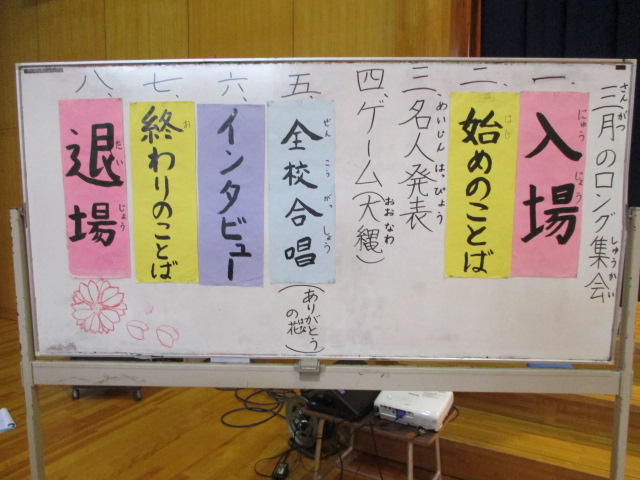 三月のロング集会
さんがつ
しゅうかい
一、入場
にゅうじょう
二、始めのことば
はじ
三、名人発表
めいじんはっぴょう
四、ゲーム(大縄)
おおなわ
五、全校合唱
ぜんこうがっしょう
(ありがとうの花)
はな
六、インタビュー
七、終わりのことば
お
八、退場
たいじょう